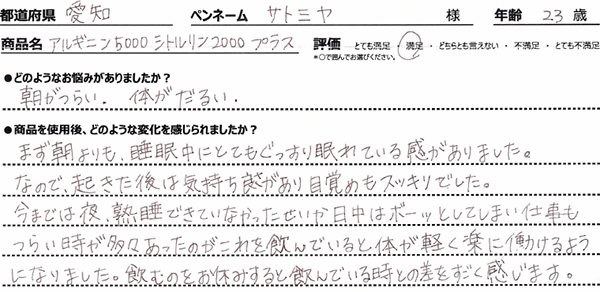 都道府県 愛知 ペンネーム サトミヤ 様 年齢 23 歳
商品名 アルギニン5000シトルリン2000プラス 評価 とても満足・満足・どちらとも言えない・不満足・とても不満足
*○で囲んでお選びください。
●どのようなお悩みがありましたか?
朝がつらい. 体がだるい.
●商品を使用後、どのような変化を感じられましたか?
まず朝よりも、睡眠中にとてもぐっすり眠れている感がありました。
なので、起きた後は気持ち良さがあり目覚めもスッキリでした。
今までは夜、熟睡できていなかったせいか日中はボーッとしてしまい仕事も
つらい時が多々あったのがこれを飲んでいると体が軽く楽に働けるよう
になりました。飲むのをお休みすると飲んでいる時との差をすごく感じます。